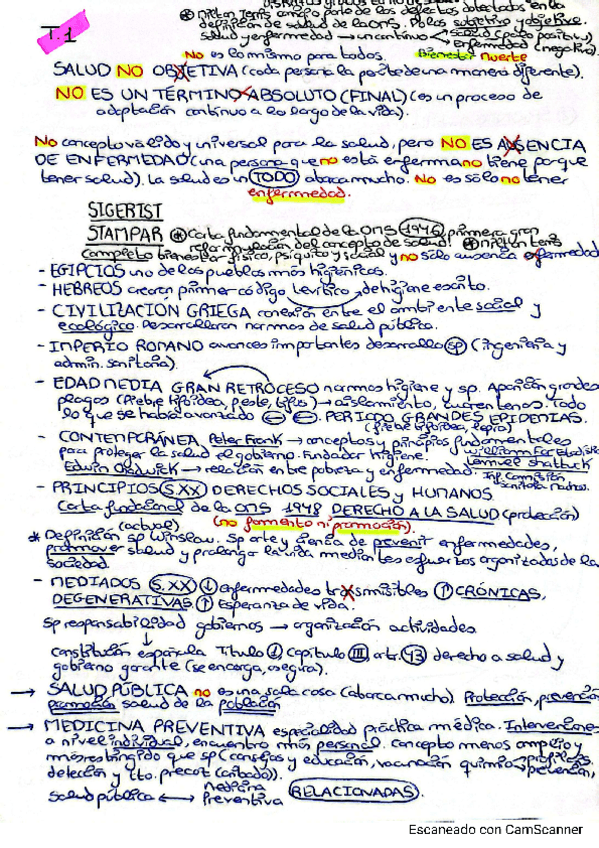 T.1
⊛ Milton Terris corrigio parte de los defectos detectados en la
definición de salud de la OMS. Polos subjetivo y objetivo.
Salud y enfermedad → un continuo salud (polo positivo)
enfermedad (negativo).
No es lo mismo para todos. Bienestar Muerte
SALUD NO OBJETIVA (cada persona la padece de una manera diferente).
NO ES UN TÉRMINO ABSOLUTO (FINAL) (es un proceso de
adaptación continuo a lo largo de la vida).
No concepto válido y universal para la salud, pero NO ES AUSENCIA
DE ENFERMEDAD (una persona que no está enferma no tiene porque
tener salud). La salud es un TODO abarca mucho. No es sólo no tener
enfermedad.
SIGERIST
STAMPAR ⊛ Carta fundamental de la OMS 1946, primera gran
reformulación del concepto de salud! ⊛ Milton Terris
Completo bienestar físico, psíquico y social y no sólo ausencia enfermedad
- EGIPCIOS uno de los pueblos más higiénicos.
- HEBREOS crearon primer código Levítico de higiene escrito.
- CIVILIZACIÓN GRIEGA conexión entre el ambiente social y
ecológico. Desarrollaron normas de salud pública.
- IMPERIO ROMANO avances importantes desarrollo SP (ingeniería y
admin. sanitaria).
- EDAD MEDIA GRAN RETROCESO normas higiene y sp. Aparición grandes
plagas (fiebre tifoidea, peste, tifus) → aislamiento, cuarentenas. Todo
lo que se había avanzado ⊖ ⊖. PERIODO GRANDES EPIDEMIAS.
(fiebre tifoidea, lepra)
- CONTEMPORÁNEA Peter Frank → conceptos y principios fundamentales
para proteger la salud el gobierno. Fundador higiene! William Far
Lemuel Shattuck
Edwin Chadwick → relación entre pobreza y enfermedad. Inf. Comisión
Sanitaria
- PRINCIPIOS S.XX DERECHOS SOCIALES y HUMANOS.
Carta fundacional de la OMS 1948 DERECHO A LA SALUD (protección)
(actual) (no fomento ni promoción).
* Definición sp Winslow. Sp arte y ciencia de prevenir enfermedades,
promover salud y prolongar la vida mediante esfuerzos organizados de la
sociedad.
- MEDIADOS S.XX ↓ enfermedades transmisibles ↑ CRÓNICAS,
DEGENERATIVAS. ↑ Esperanza de vida.
Sp responsabilidad gobiernos → organización actividades
↓
Constitución española Título I Capítulo III, art. 43 derecho a salud y
gobierno garante (se encarga, asegura).
→ SALUD PÚBLICA no es una sola cosa (abarca mucho). Protección, prevención
promoción salud de la población
→ MEDICINA PREVENTIVA especialidad práctica médica. Intervenciones
a nivel individual, encuentro más personal. Concepto menos amplio y
más restringido que sp (consejos y educación, vacunación quimioprofilaxis,
prevención,
detección y tto. precoz (cribado)).
Salud pública ←→ Medicina Preventiva RELACIONADAS.
Escaneado con CamScanner